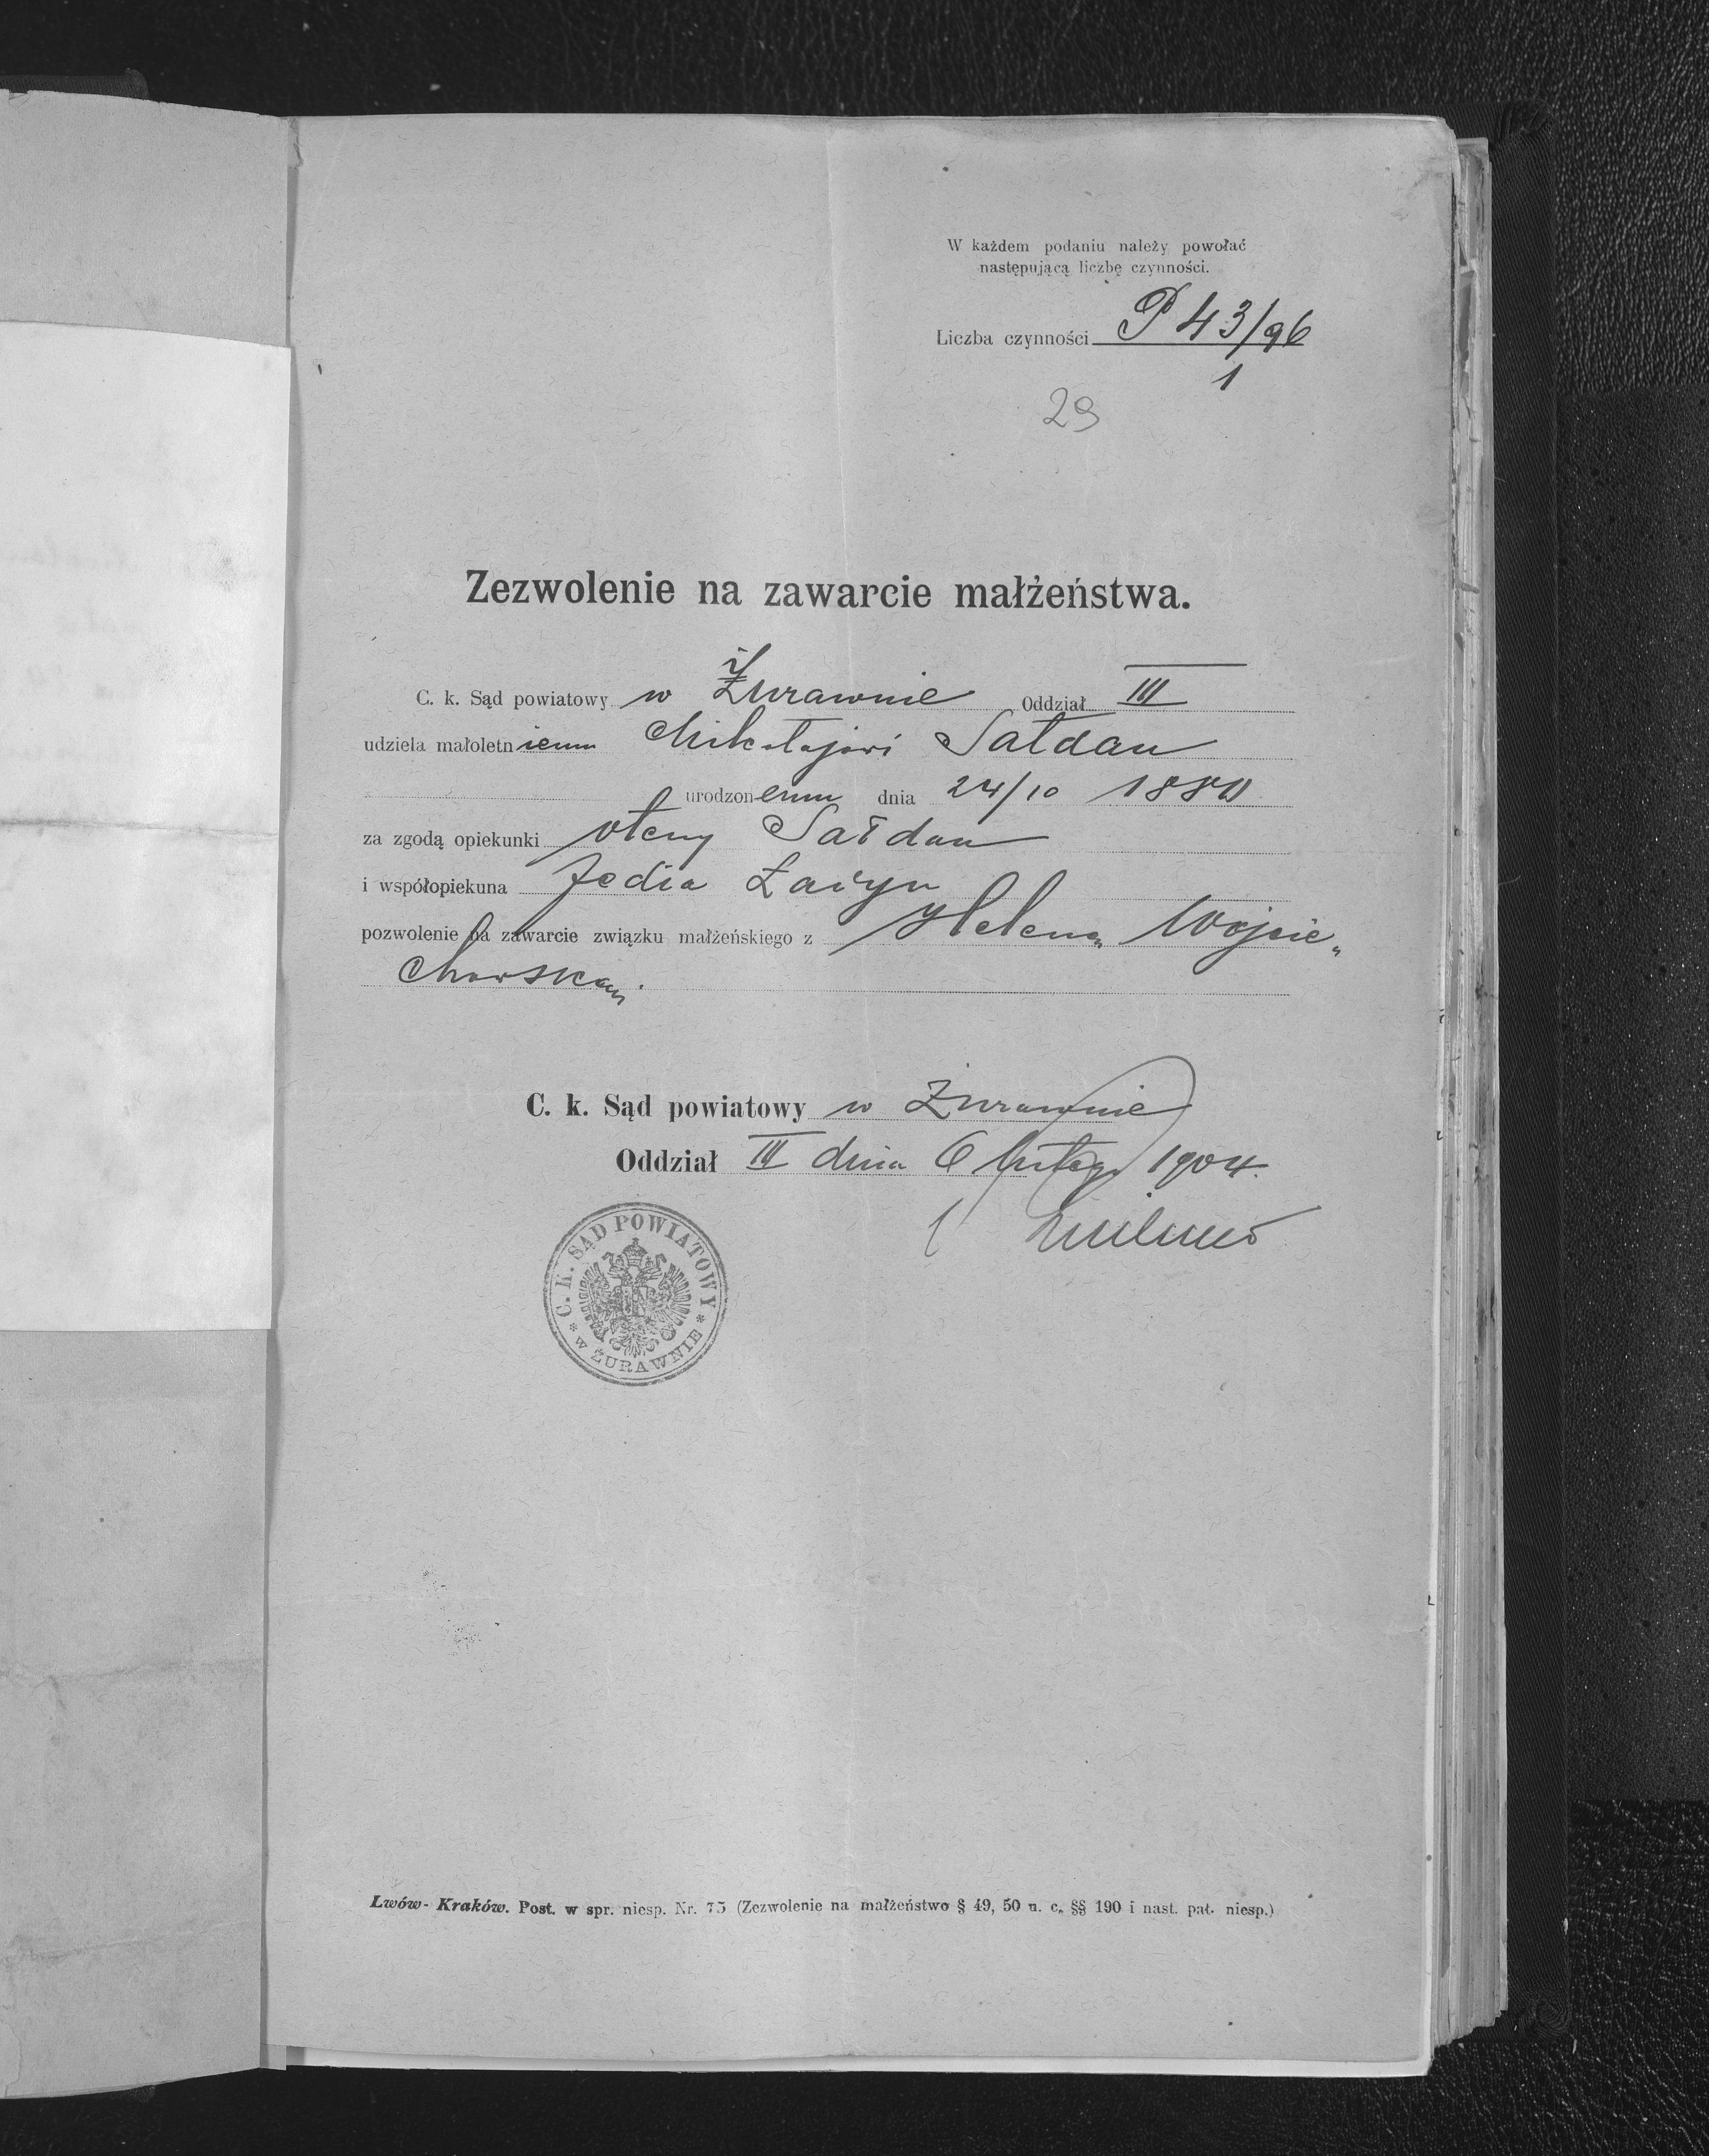 W każdem podaniu należy powołać
następującą liczbę czynności.
Liczba czynności P 43/96
1
29
Zezwolenie na zawarcie małżeństwa.
C. k. Sąd powiatowy w Żurawnie Oddział III
udziela małoletniemu Mikołajowi Sałdan
urodzonemu dnia 24/10 1880
za zgodą opiekunki Oleny Sałdan
i współopiekuna Fedia
pozwolenie na zawarcie związku małżeńskiego z Heleną Wojcie„
chowską.
C. k. Sąd powiatowy w Żurawnie
Oddział III dnia 6 lutego 1904.
C. K. SĄD POWIATOWY
* W ŻURAWNIE *
Lwów-Kraków. Post. w spr. niesp. Nr. 75 (Zezwolenie na małżeństwo § 49, 50 u. c. §§ 190 i nast. pat. niesp.)